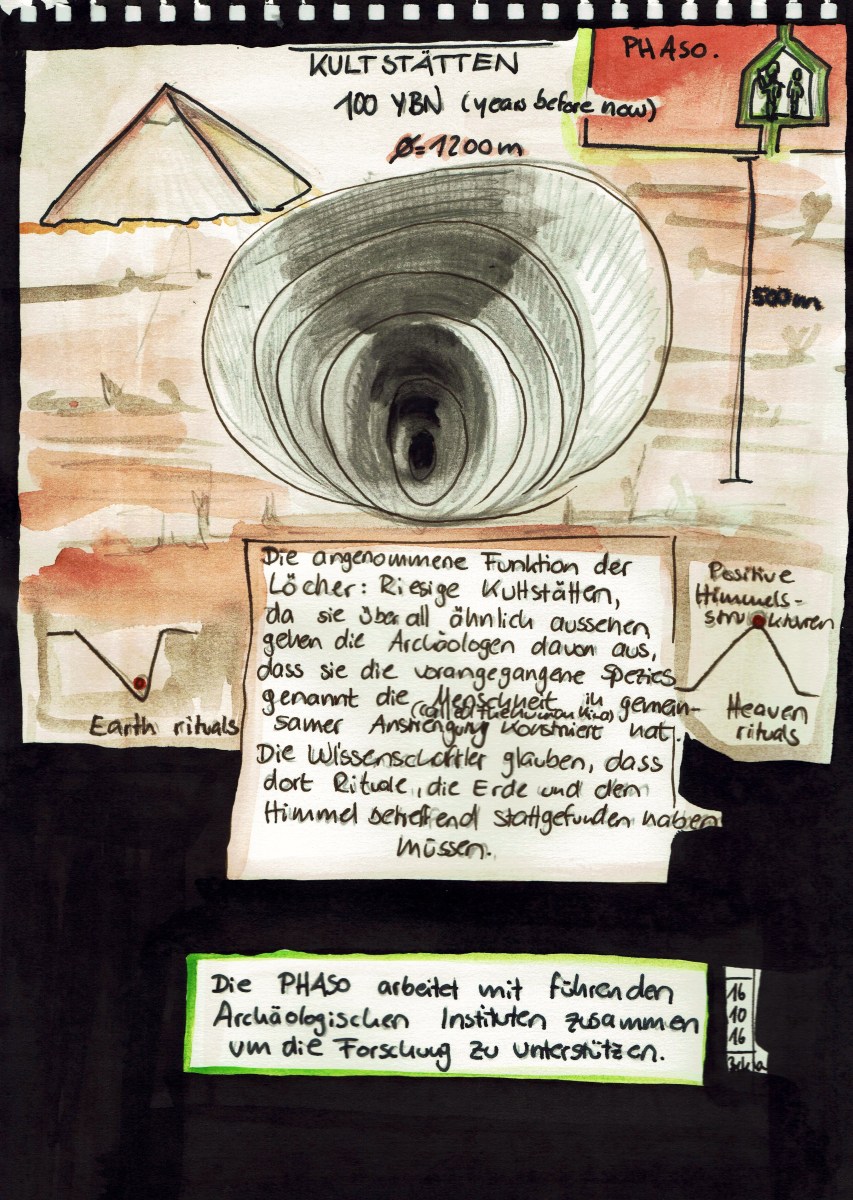 KULTSTÄTTEN
100 YBN (years before now)
Ø=1200m
PHASO.
500m
Die angenommene Funktion der
Löcher: Riesige Kultstätten,
da sie überall ähnlich aussehen
gehen die Archäologen davon aus,
dass sie die vorangegangene Spezies
genannt die Menschheit in gemein-
(called the human kind)
samer Anstrengung konstruiert hat.
Die Wissenschaftler glauben, dass
dort Rituale, die Erde und den
Himmel betreffend stattgefunden haben
müssen.
Earth rituals
Positive
Himmels-
strukturen
Heaven
rituals
Die PHASO arbeitet mit führenden
Archäologischen Instituten zusammen
um die Forschung zu unterstützen.
16
10
16